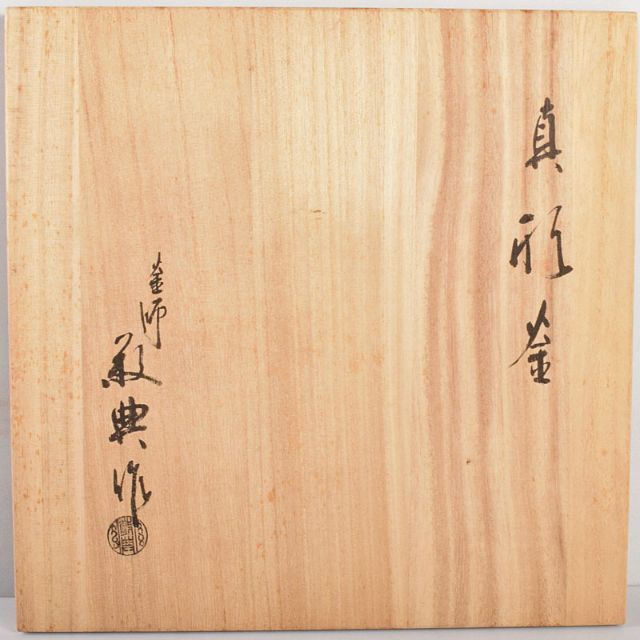 真形釜
釜師
敬典作